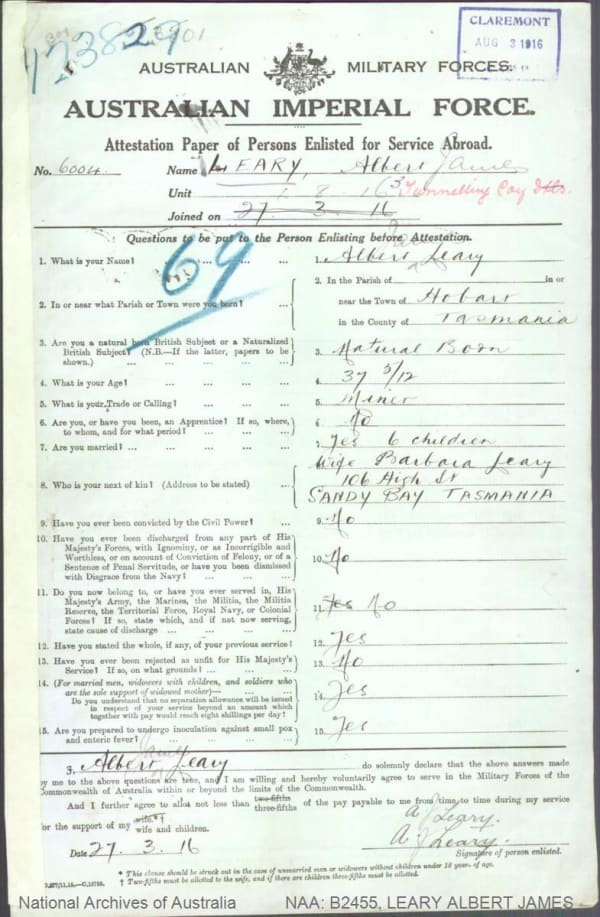 123829
CLAREMONT
AUG 31916
AUSTRALIAN MILITARY FORCES.
AUSTRALIAN IMPERIAL FORCE.
Attestation Paper of Persons Enlisted for Service Abroad.
No. 6004. Name LEARY, Albert James
Unit 1. 8. 16 3 Tunnelling Coy
Joined on 27. 3. 16
Questions to be put to the Person Enlisting before Attestation.
69
1. What is your Name? ... ... ... 1. Albert James Leary
2. In or near what Parish or Town were you born? ... 2. In the Parish of in or
near the Town of Hobart
in the County of Tasmania
3. Are you a natural born British Subject or a Naturalized
British Subject? (N.B.—If the latter, papers to be
shown.) ... ... ... ... 3. Natural Born
4. What is your Age? ... ... ... 4. 37 5/12
5. What is your Trade or Calling? ... ... ... 5. Miner
6. Are you, or have you been, an Apprentice? If so, where,
to whom, and for what period? ... ... ... 6. No
7. Are you married? ... ... ... ... 7. Yes 6 children
8. Who is your next of kin? (Address to be stated) ... 8. Wife Barbara Leary
106 High St
SANDY BAY TASMANIA
9. Have you ever been convicted by the Civil Power? ... 9. No
10. Have you ever been discharged from any part of His
Majesty's Forces, with Ignominy, or as Incorrigible and
Worthless, or on account of Conviction of Felony, or of a
Sentence of Penal Servitude, or have you been dismissed
with Disgrace from the Navy? ... ... ... 10. No
11. Do you now belong to, or have you ever served in, His
Majesty's Army, the Marines, the Militia, the Militia
Reserve, the Territorial Force, Royal Navy, or Colonial
Forces? If so, state which, and if not now serving,
state cause of discharge ... ... ... ... 11. Yes No
12. Have you stated the whole, if any, of your previous service? 12. Yes
13. Have you ever been rejected as unfit for His Majesty's
Service? If so, on what grounds? ... ... ... 13. No
14. (For married men, widowers with children, and soldiers who
are the sole support of widowed mother)—
Do you understand that no separation allowance will be issued
in respect of your service beyond an amount which
together with pay would reach eight shillings per day? 14. Yes
15. Are you prepared to undergo inoculation against small pox
and enteric fever? ... ... ... ... 15. Yes
I, Albert James Leary do solemnly declare that the above answers made
by me to the above questions are true, and I am willing and hereby voluntarily agree to serve in the Military Forces of the
Commonwealth of Australia within or beyond the limits of the Commonwealth.
And I further agree to allot not less than two-fifths three-fifths of the pay payable to me from time to time during my service
for the support of my wife.*† wife and children.
A J Leary.
A. J Leary.
Date 27. 3. 16 Signature of person enlisted.
* This clause should be struck out in the case of unmarried men or widowers without children under 18 year of age.
† Two-fifths must be allotted to the wife, and if there are children three-fifths must be allotted.
National Archives of Australia NAA: B2455, LEARY ALBERT JAMES